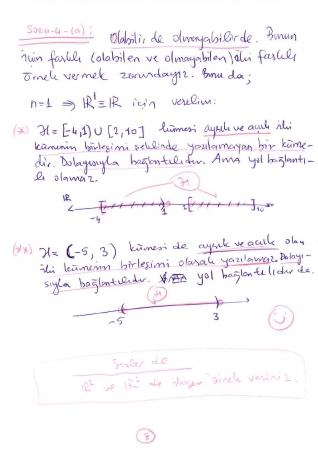 Soru-4-(a): Olabilir de olmayabilir de. Bunun
için farklı (olabilen ve olmayabilen) iki farklı
örnek vermek zorundayız. Bunu da;
n=1 ⇒ ℝ¹≡ℝ için verelim:
(*) H=[-4,1)∪[2,10] kümesi ayrık ve açık iki
kümenin birleşimi şeklinde yazılamayan bir küme-
dir. Dolayısıyla bağlantılıdır. Ama yol bağlantı-
lı olamaz.
H
ℝ
-4 1 10
(**) H=(-5, 3) kümesi de ayrık ve açık olan
iki kümenin birleşimi olarak yazılamaz. Dolayı-
sıyla bağlantılıdır. yol bağlantılıdır da.
H
-5 3
Sizler de
ℝ² ve ℝ³ de diğer örnek veriniz.
8